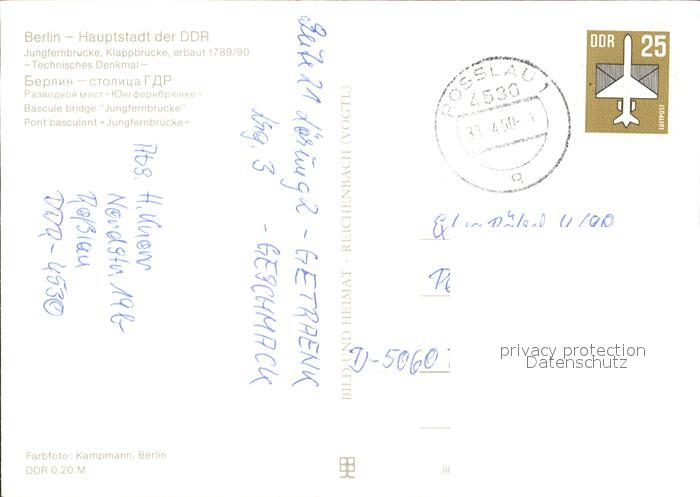 Berlin – Hauptstadt der DDR
Jungfernbrücke, Klappbrücke, erbaut 1789/90
–Technisches Denkmal–
Берлин – столица ГДР
Разводной мост »Юнгфернбрюкке«
Bascule bridge "Jungfernbrücke"
Pont basculant »Jungfernbrücke«
DDR 25
LUFTPOST
ROSSLAU 1
4530
g
Seite 21 Lösung 2 - GETRAENK
Mag. 3 - GESCHMACK
Abs. H. Knorr
Nordstr. 19b
Roßlau
DDR - 4530
BILD UND HEIMAT · REICHENBACH (VOGTL)
D-5060
privacy protection
Datenschutz
Farbfoto: Kampmann, Berlin
DDR 0,20 M